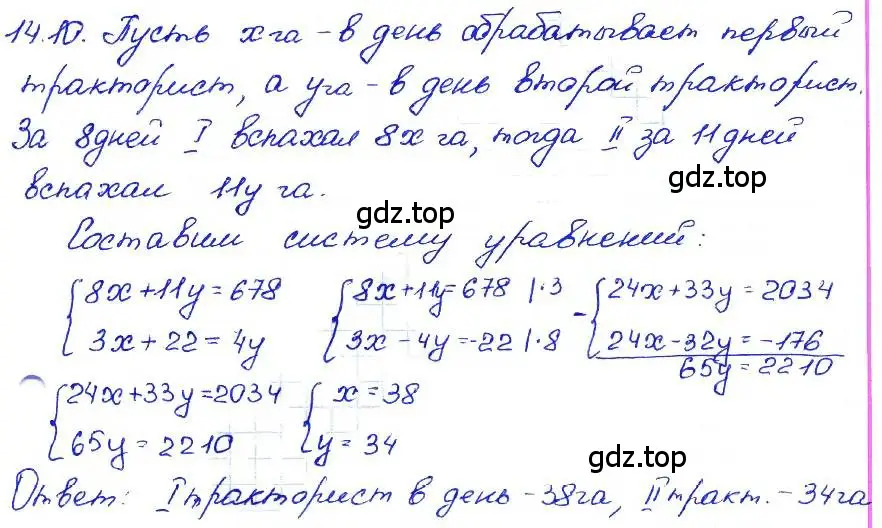 14.10. Пусть x га - в день обрабатывает первый
тракторист, а y га - в день второй тракторист.
За 8 дней I вспахал 8x га, тогда II за 11 дней
вспахал 11y га.
gdz.top
gdz.top
Составим систему уравнений:
8x+11y=678 8x+11y=678 |·3 - 24x+33y=2034
3x+22=4y 3x-4y=-22 |·8 24x-32y=-176
65y=2210
24x+33y=2034 x=38
65y=2210 y=34
gdz.top
gdz.top
Ответ: I тракторист в день - 38 га, II тракт. - 34 га